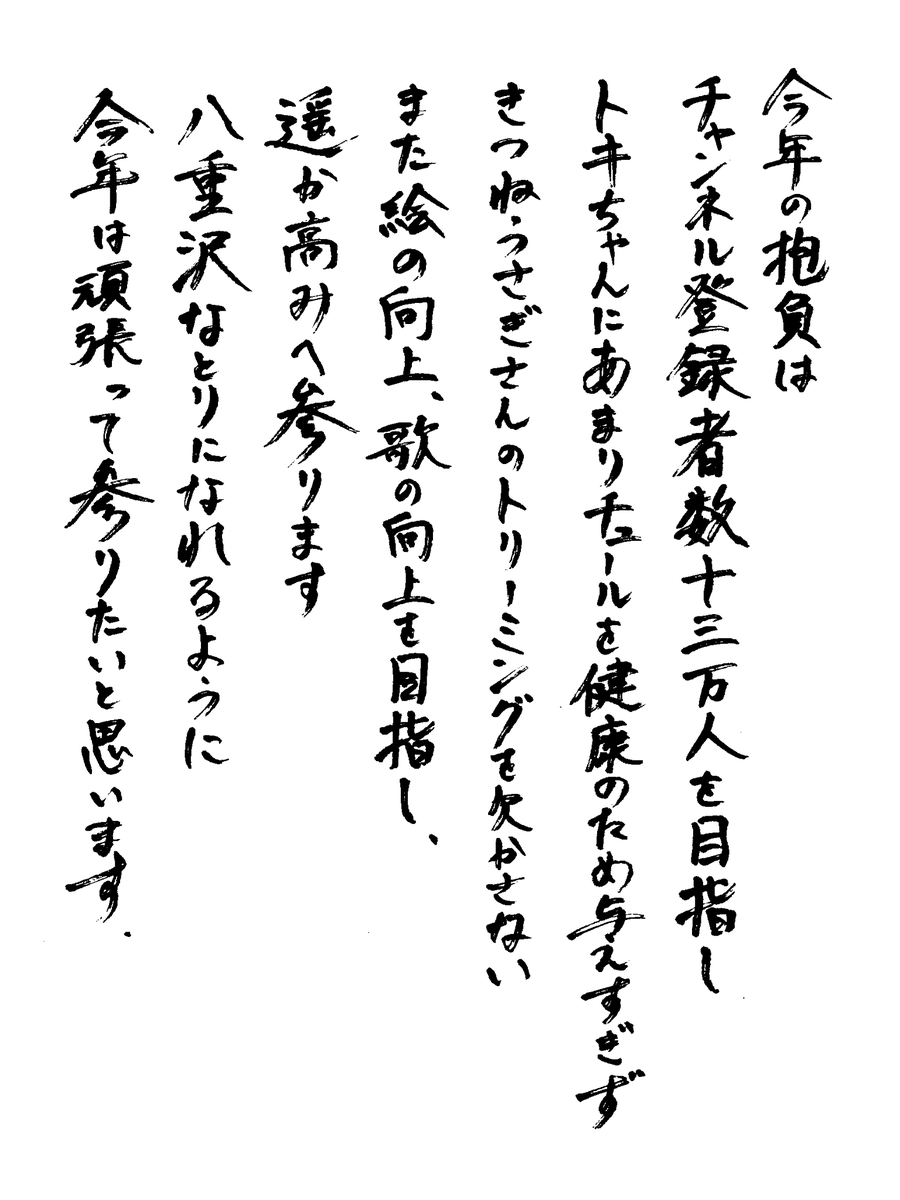 今年の抱負は
チャンネル登録者数十三万人を目指し
トキちゃんにあまりチュールを健康のため与えすぎず
きつねうさぎさんのトリーミングを欠かさない
また絵の向上、歌の向上を目指し、
遥か高みへ参ります
八重沢なとりになれるように
今年は頑張って参りたいと思います.